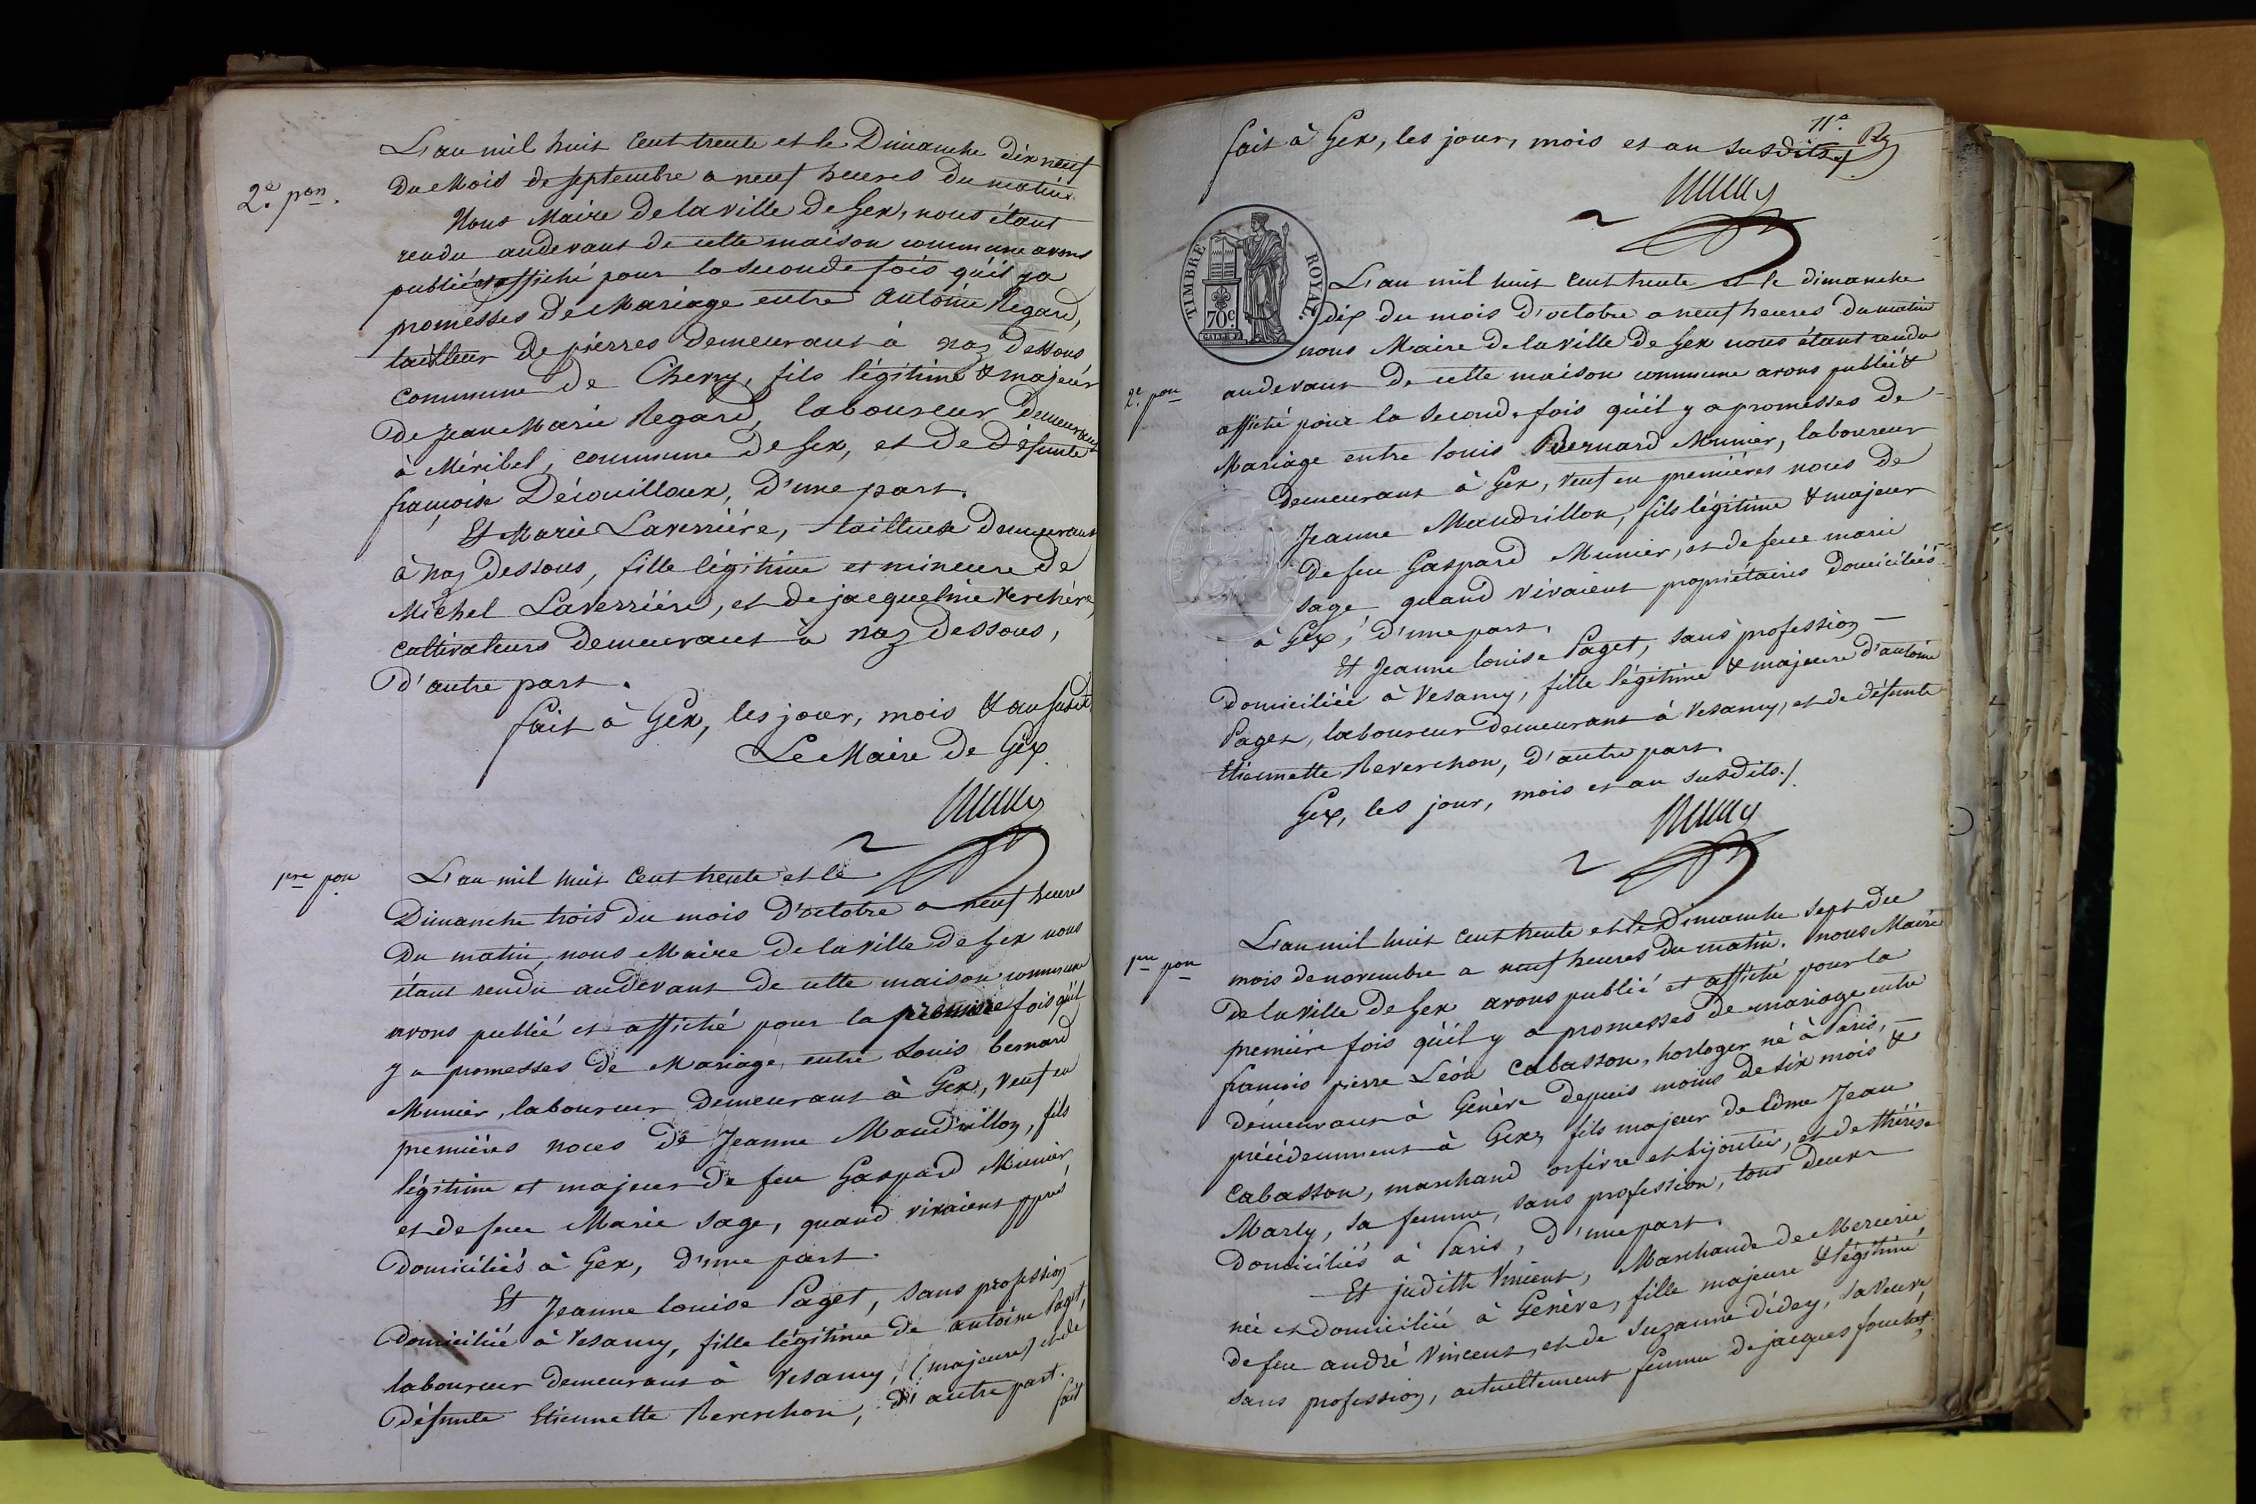 2.e pon.
L'an mil huit cent trente et le Dimanche dix neuf
du Mois de septembre a neuf heures du matin.
Nous Maire de la ville de Gex, nous étant
rendu audevant de cette maison commune avons
publié et affiché pour la seconde fois qu'il y a
promesses de Mariage entre antoine Regard,
tailleur de pierres demeurant à naz dessous
commune de Chevry, fils légitime & majeur
de Jean Marie Regard, laboureur demeurant
à Méribel, commune de Gex, et de défunte
françoise Découilloux, d'une part.
Et Marie Laverrière, tailleuse demeurant
à naz dessous, fille légitime et mineure de
Michel Laverrière, et de jacqueline Verchère,
cultivateurs demeurant à naz dessous,
d'autre part.
fait à Gex, les jour, mois & an susdit
Le Maire de Gex.
1re pon
L'an mil huit cent trente et le
Dimanche trois du mois d'octobre a neuf heures
du matin, nous Maire de la ville de Gex nous
étant rendu audevant de cette maison commune
avons publié et affiché pour la première fois qu'il
y a promesses de Mariage entre Louis bernard
Munier, laboureur demeurant à Gex, veuf en
premières noces de Jeanne Maudrillon, fils
légitime et majeur de feu Gaspard Munier,
et de feue Marie Sage, quand vivaient ppres
domiciliés à Gex, d'une part.
Et Jeanne louise Paget, sans profession
domiciliée à Vesancy, fille légitime de antoine Paget,
laboureur demeurant à Vesancy, (majeure) et de
défunte Etiennette Reverchon, d'autre part.
fait
71.e
fait à Gex, les jour, mois et an susdits./.
TIMBRE ROYAL
70c
2.e pon
L'an mil huit cent trente et le dimanche
dix du mois d'octobre a neuf heures du matin
nous Maire de la ville de Gex nous étant rendu
audevant de cette maison commune avons publié &
affiché pour la seconde fois qu'il y a promesses de
Mariage entre louis Bernard Munier, laboureur
demeurant à Gex, veuf en premières noces de
Jeanne Maudrillon, fils légitime & majeur
de feu Gaspard Munier, et de feue marie
sage quand vivaient propriétaires domiciliés
à Gex, d'une part.
Et Jeanne louise Paget, sans profession
domiciliée à Vesancy, fille légitime & majeure d'antoine
Paget, laboureur demeurant à Vesancy, et de défunte
Etiennette Reverchon, d'autre part.
Gex, les jour, mois et an susdits./.
1re pon
L'an mil huit cent trente et le Dimanche sept du
mois de novembre a neuf heures du matin. nous Maire
de la ville de Gex avons publié et affiché pour la
première fois qu'il y a promesses de mariage entre
françois pierre Léon Cabasson, horloger né à Paris,
demeurant à Genève depuis moins de six mois &
précédemment à Gex, fils majeur de Edme Jean
Cabasson, marchand orfèvre et bijoutier, et de thérèse
Marly, sa femme, sans profession, tous deux
domiciliés à Paris, d'une part.
Et judith Vincent, Marchande de Mercerie
née et domiciliée à Genève, fille majeure & légitime
de feu andré Vincent, et de suzanne didey, sa veuve,
sans profession, actuellement femme de jacques fouchet.